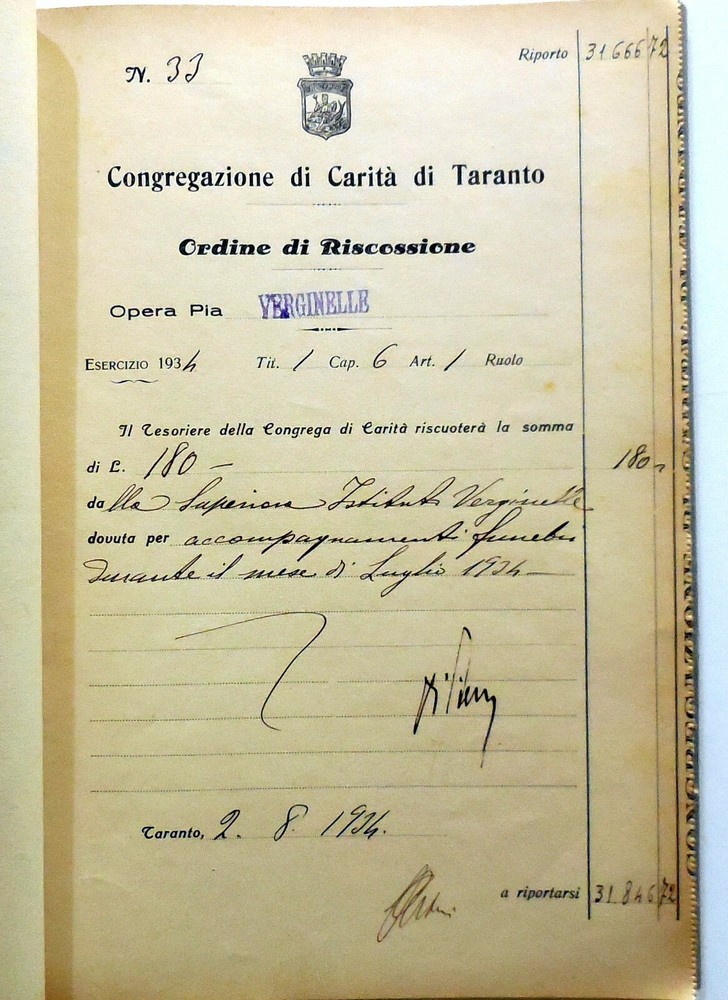 N. 33
Riporto 31666 72
Congregazione di Carità di Taranto
Ordine di Riscossione
Opera Pia VERGINELLE
ESERCIZIO 1934 Tit. 1 Cap. 6 Art. 1 Ruolo
Il Tesoriere della Congrega di Carità riscuoterà la somma
di L. 180 — 180 -
dalla Superiora Istituto Verginelle
dovuta per accompagnamenti funebri
durante il mese di Luglio 1934 —
Taranto, 2. 8. 1934.
a riportarsi 31846 72
CONGREGAZIONE DI CARITÀ DI TARANTO